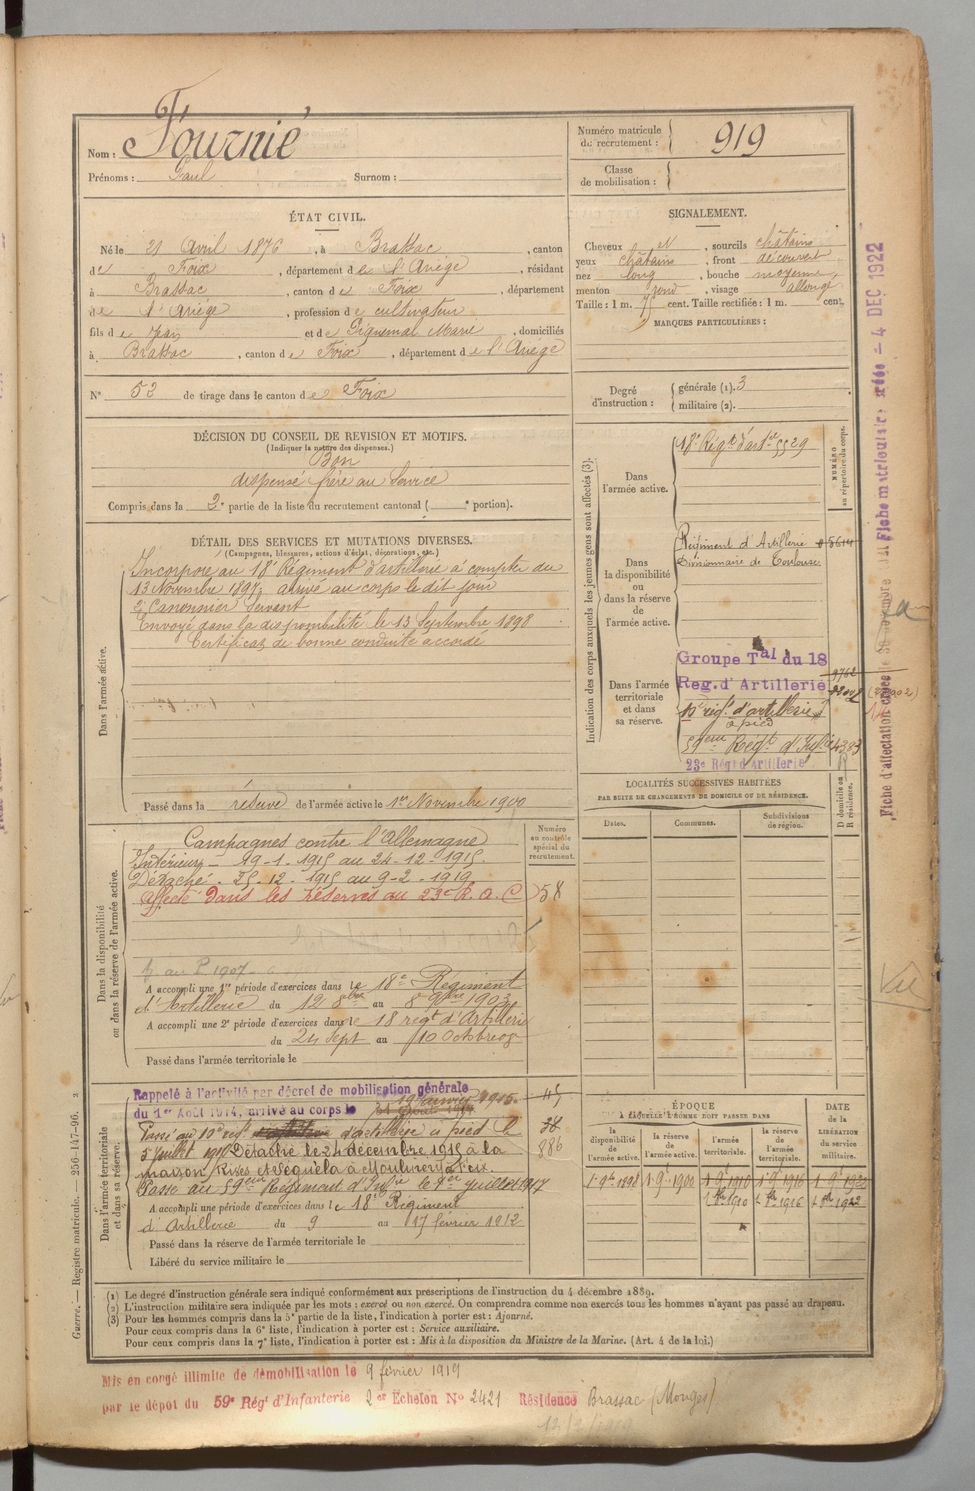 Nom : Fournié
Prénoms : Paul Surnom :
Numéro matricule de recrutement : 919
Classe de mobilisation :
ÉTAT CIVIL.
Né le 21 Avril 1876, à Brassac, canton
de Foix, département de l'Ariége, résidant
à Brassac, canton de Foix, département
de l'Ariége, profession de cultivateur
fils de Jean et de Piquemal Marie, domiciliés
à Brassac, canton de Foix, département de l'Ariége
N° 53 de tirage dans le canton de Foix
DÉCISION DU CONSEIL DE REVISION ET MOTIFS.
(Indiquer la nature des dispenses.)
Bon
dispensé frère au Service
Compris dans la 2e partie de la liste du recrutement cantonal ( e portion).
SIGNALEMENT.
Cheveux N, sourcils châtains
yeux châtains, front découvert
nez long, bouche moyenne,
menton rond, visage allongé
Taille : 1 m. 75 cent. Taille rectifiée : 1 m. cent.
MARQUES PARTICULIÈRES :
Degré d'instruction : générale (1). 3
militaire (2).
Indication des corps auxquels les jeunes gens sont affectés (3).
NUMÉRO au répertoire du corps.
Dans l'armée active.
18e Régt d'art
Dans la disponibilité ou dans la réserve de l'armée active.
Régiment d'Artillerie
Divisionnaire de Toulouse
Dans l'armée territoriale et dans sa réserve.
Groupe Tal du 18
Reg. d'Artillerie
10e régt d'artillerie
à pied
59eme Regt d'Infie
23e Régt d'Artillerie
DÉTAIL DES SERVICES ET MUTATIONS DIVERSES.
(Campagnes, blessures, actions d'éclat, décorations, etc.)
Dans l'armée active.
Incorporé au 18e Régiment d'artillerie à compter du
13 Novembre 1897, arrivé au corps le dit jour
2e Canonnier Servant
Envoyé dans la disponibilité le 13 Septembre 1898
Certificat de bonne conduite accordé
Passé dans la réserve de l'armée active le 1er Novembre 1900
Numéro au contrôle spécial du recrutement.
Dans la disponibilité ou dans la réserve de l'armée active.
Campagnes contre l'Allemagne
Intérieur — 19-1-1915 au 24-12-1915.
Détaché. 25-12-1915 au 9-2-1919
Affecté dans les réserves au 23e R.A.C 58
A accompli une 1re période d'exercices dans le 18e Régiment
d'Artillerie du 12 8bre au 8 9bre 1903
A accompli une 2e période d'exercices dans le 18 regt d'Artillerie
du 24 Sept au 10 Octobre
Passé dans l'armée territoriale le
LOCALITÉS SUCCESSIVES HABITÉES
PAR SUITE DE CHANGEMENTS DE DOMICILE OU DE RÉSIDENCE.
Dates. Communes. Subdivisions de région. D domicile ou R résidence.
Dans l'armée territoriale et dans sa réserve.
Rappelé à l'activité par décret de mobilisation générale
du 1er Août 1914, arrivé au corps le 19 Janvier 1915.
Passé au 10e regt d'artillerie à pied le
5 Juillet 1915 Détaché le 24 décembre 1915 à la
maison Rives et Séguéla à Moulinery Foix.
Passé au 59eme Régiment d'Infie le 1er Juillet 1917
A accompli une période d'exercices dans le 18e Régiment
d'Artillerie du 9 au 17 février 1912
Passé dans la réserve de l'armée territoriale le
Libéré du service militaire le
886
ÉPOQUE
À LAQUELLE L'HOMME DOIT PASSER DANS
DATE DE LA LIBÉRATION du service militaire.
la disponibilité de l'armée active. la réserve de l'armée active. l'armée territoriale. la réserve de l'armée territoriale.
1 9bre 1898 1 9bre 1900 1 9bre 1910 1 9bre 1916 1 9bre 1922
(1) Le degré d'instruction générale sera indiqué conformément aux prescriptions de l'instruction du 4 décembre 1889.
(2) L'instruction militaire sera indiquée par les mots : exercé ou non exercé. On comprendra comme non exercés tous les hommes n'ayant pas passé au drapeau.
(3) Pour les hommes compris dans la 5e partie de la liste, l'indication à porter est : Ajourné.
Pour ceux compris dans la 6e liste, l'indication à porter est : Service auxiliaire.
Pour ceux compris dans la 7e liste, l'indication à porter est : Mis à la disposition du Ministre de la Marine. (Art. 4 de la loi.)
Mis en congé illimité de démobilisation le 9 février 1919
par le dépôt du 59e Régt d'Infanterie 2er Echelon No 2421 Résidence Brassac (Monges)
Guerre. — Registre matricule. — 256-147-96.
4 DEC 1922